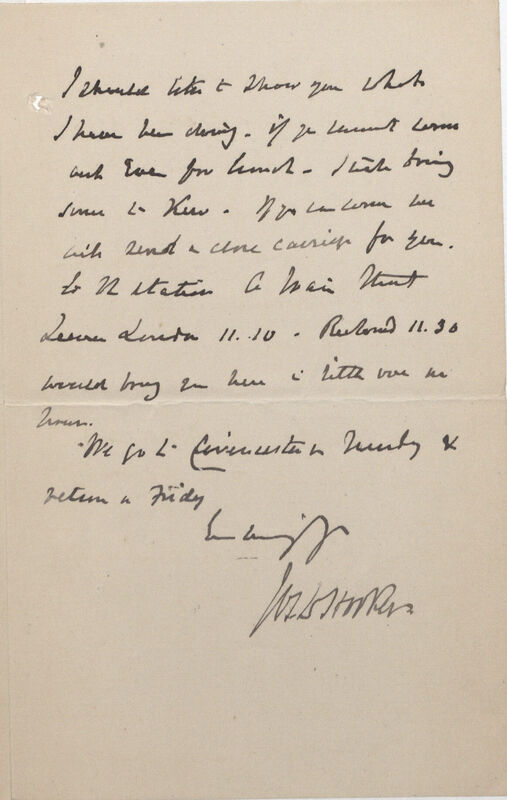 I should like to show you what
I have been doing. if you cannot come
out even for lunch. I will bring
some to Kew. If you can come we
will send a close carriage for you.
to the station A train that
Leaves London 11.10 - Richmond 11.30
would bring you here in little over an
hour.
We go to Cirencester on Tuesday &
return on Friday
Jos D Hooker